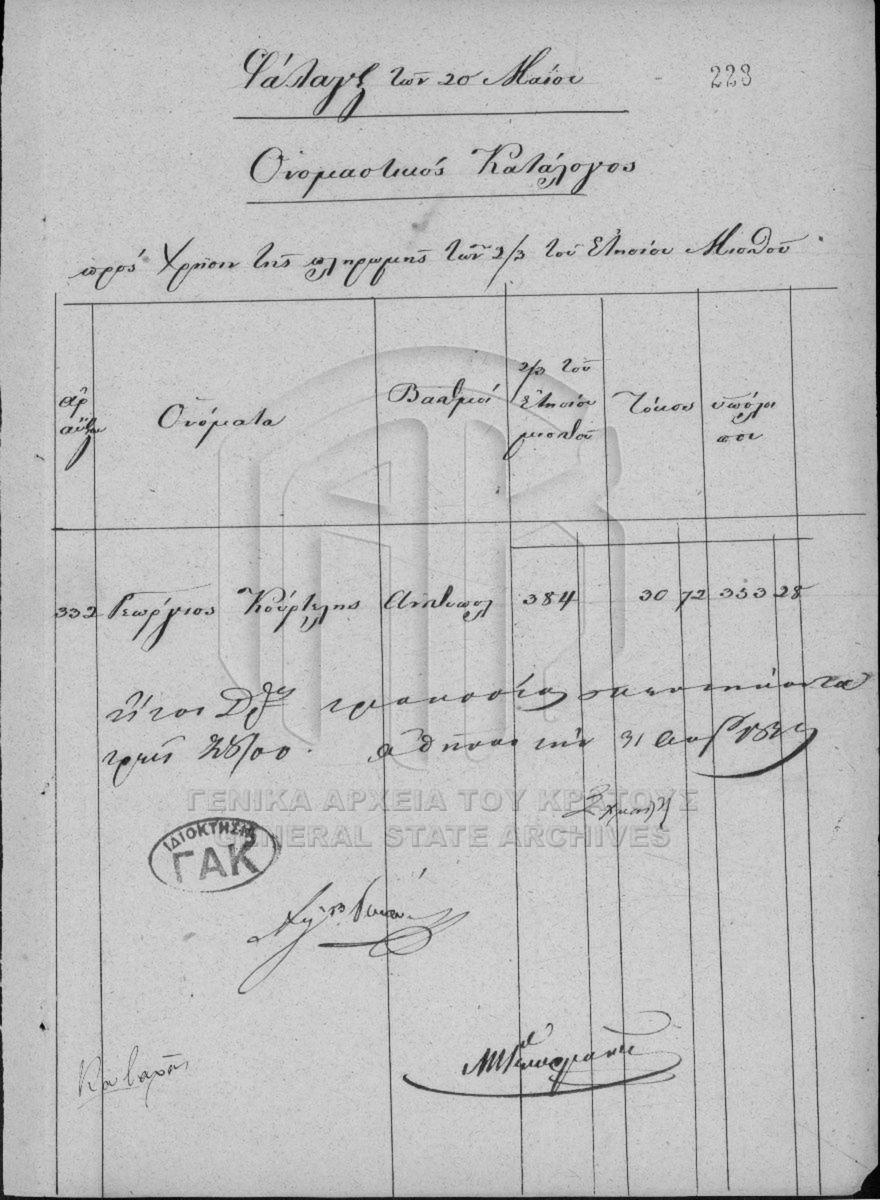 Φάλαγξ τῶν 20 Μαΐου
223
Ὀνομαστικός Κατάλογος
πρός χρῆσιν τῆς πληρωμῆς τῶν 2/3 τοῦ Ἐτησίου Μισθοῦ
ἀρ αὔξω
Ὀνόματα
Βαθμοί
2/3 τοῦ Ἐτησίου μισθοῦ
Τόκου
ὑπόλοιπου
332 Γεώργιος Κούρτελης Ἀνθυπολ 384 30 72 353 28
ἤτοι Δρχ τριακοσίας πεντήκοντα
τρεῖς 28/00. Ἀθῆναι τὴν 31
ΓΕΝΙΚΑ ΑΡΧΕΙΑ ΤΟΥ ΚΡΑΤΟΥΣ
GENERAL STATE ARCHIVES
ΙΔΙΟΚΤΗΣΙΑ
ΓΑΚ